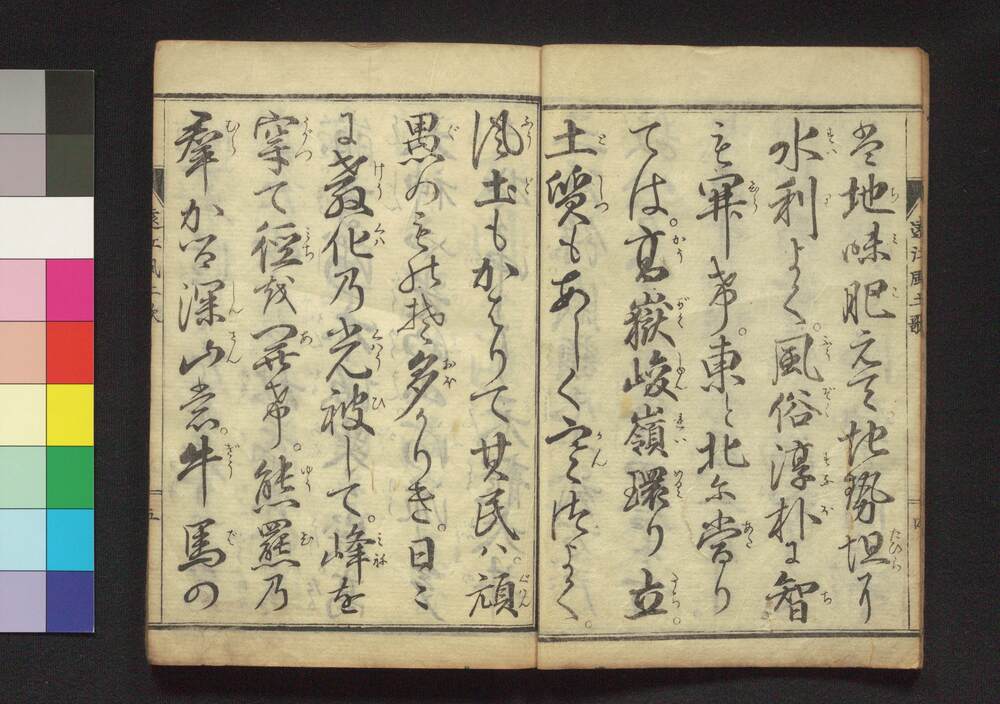 は地味肥えて。地勢坦り
水利よく。風俗淳朴に智
も開けき。東と北に當り
ては。高嶽峻嶺環り立。
土質もあしく寒さつよく。
遠江風土歌
風土もかはりて其民ハ。頑
愚のものぞ多かりき。日に
に教化乃光被して。峰を
穿て徑を けき。熊羆乃
羣かる深山も。牛馬の
遠江風土歌 五